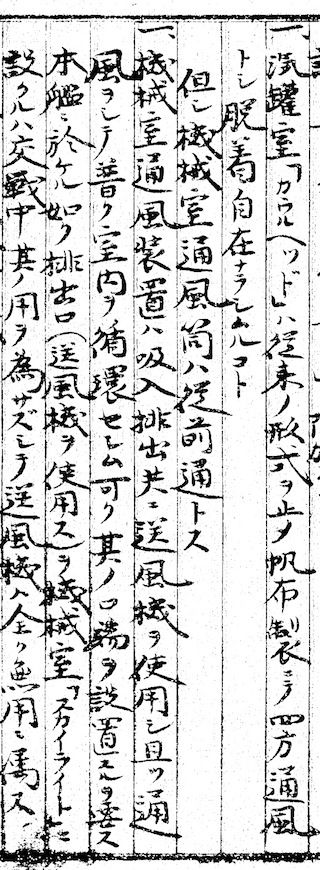 一、汽罐室「カウルヘッド」ハ從来ノ形式ヲ止メ帆布製ニテ四方通風
トシ脱着自在ナラシムルコト
但シ機械室通風筒ハ從前通トス
一、機械室通風装置ハ吸入排出共ニ送風機ヲ使用シ且ツ通
風ヲシテ普ク室内ヲ循環セシム可ク其ノ口端ヲ設置スルヲ要ス
本艦ニ於ケル如ク排出口(送風機ヲ使用ス)ヲ機械室「スカイライト」ニ
設クルハ交戦中其ノ用ヲ為サズシテ送風機ハ全ク無用ニ属ス